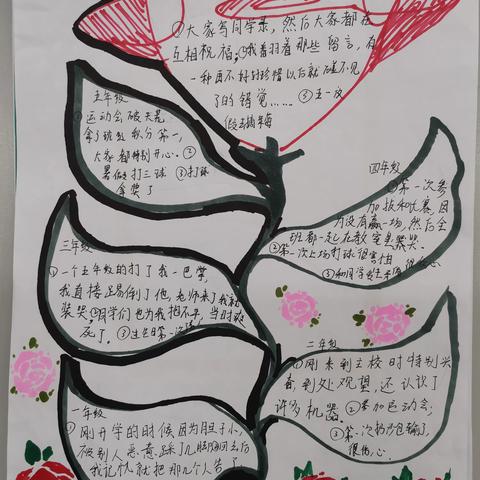 ①大家写同学录,然后大家都在
互相祝福,②我看着那些留言,有
一种再不好好珍惜以后就碰不见
了的错觉……③五一放
假去摘梅
五年级
①运动会破天荒
拿了班级积分第一,
大家都特别开心。②
暑假打三球
③打球
拿奖了
四年级
①第一次参
加拔河比赛,因
为没有赢一场,然后全
班都一起在教室里哭。
②第一次上场打球很害怕
③和同学
三年级
①一个五年级的打了我一巴掌,
我直接踢倒了他,老师来了我就
装哭,②同学们也为我抱不平,当时爽
死了。③生日第一次
二年级
①刚来到主校时特别兴
奋,到处观望,还认识了
许多机器。②参加运动会,
③第一次扔沙包输了,
很伤心。
一年级
①刚开学的时候因为胆子小,
被别人恶意踩了几脚
我记仇就把那几个人告了